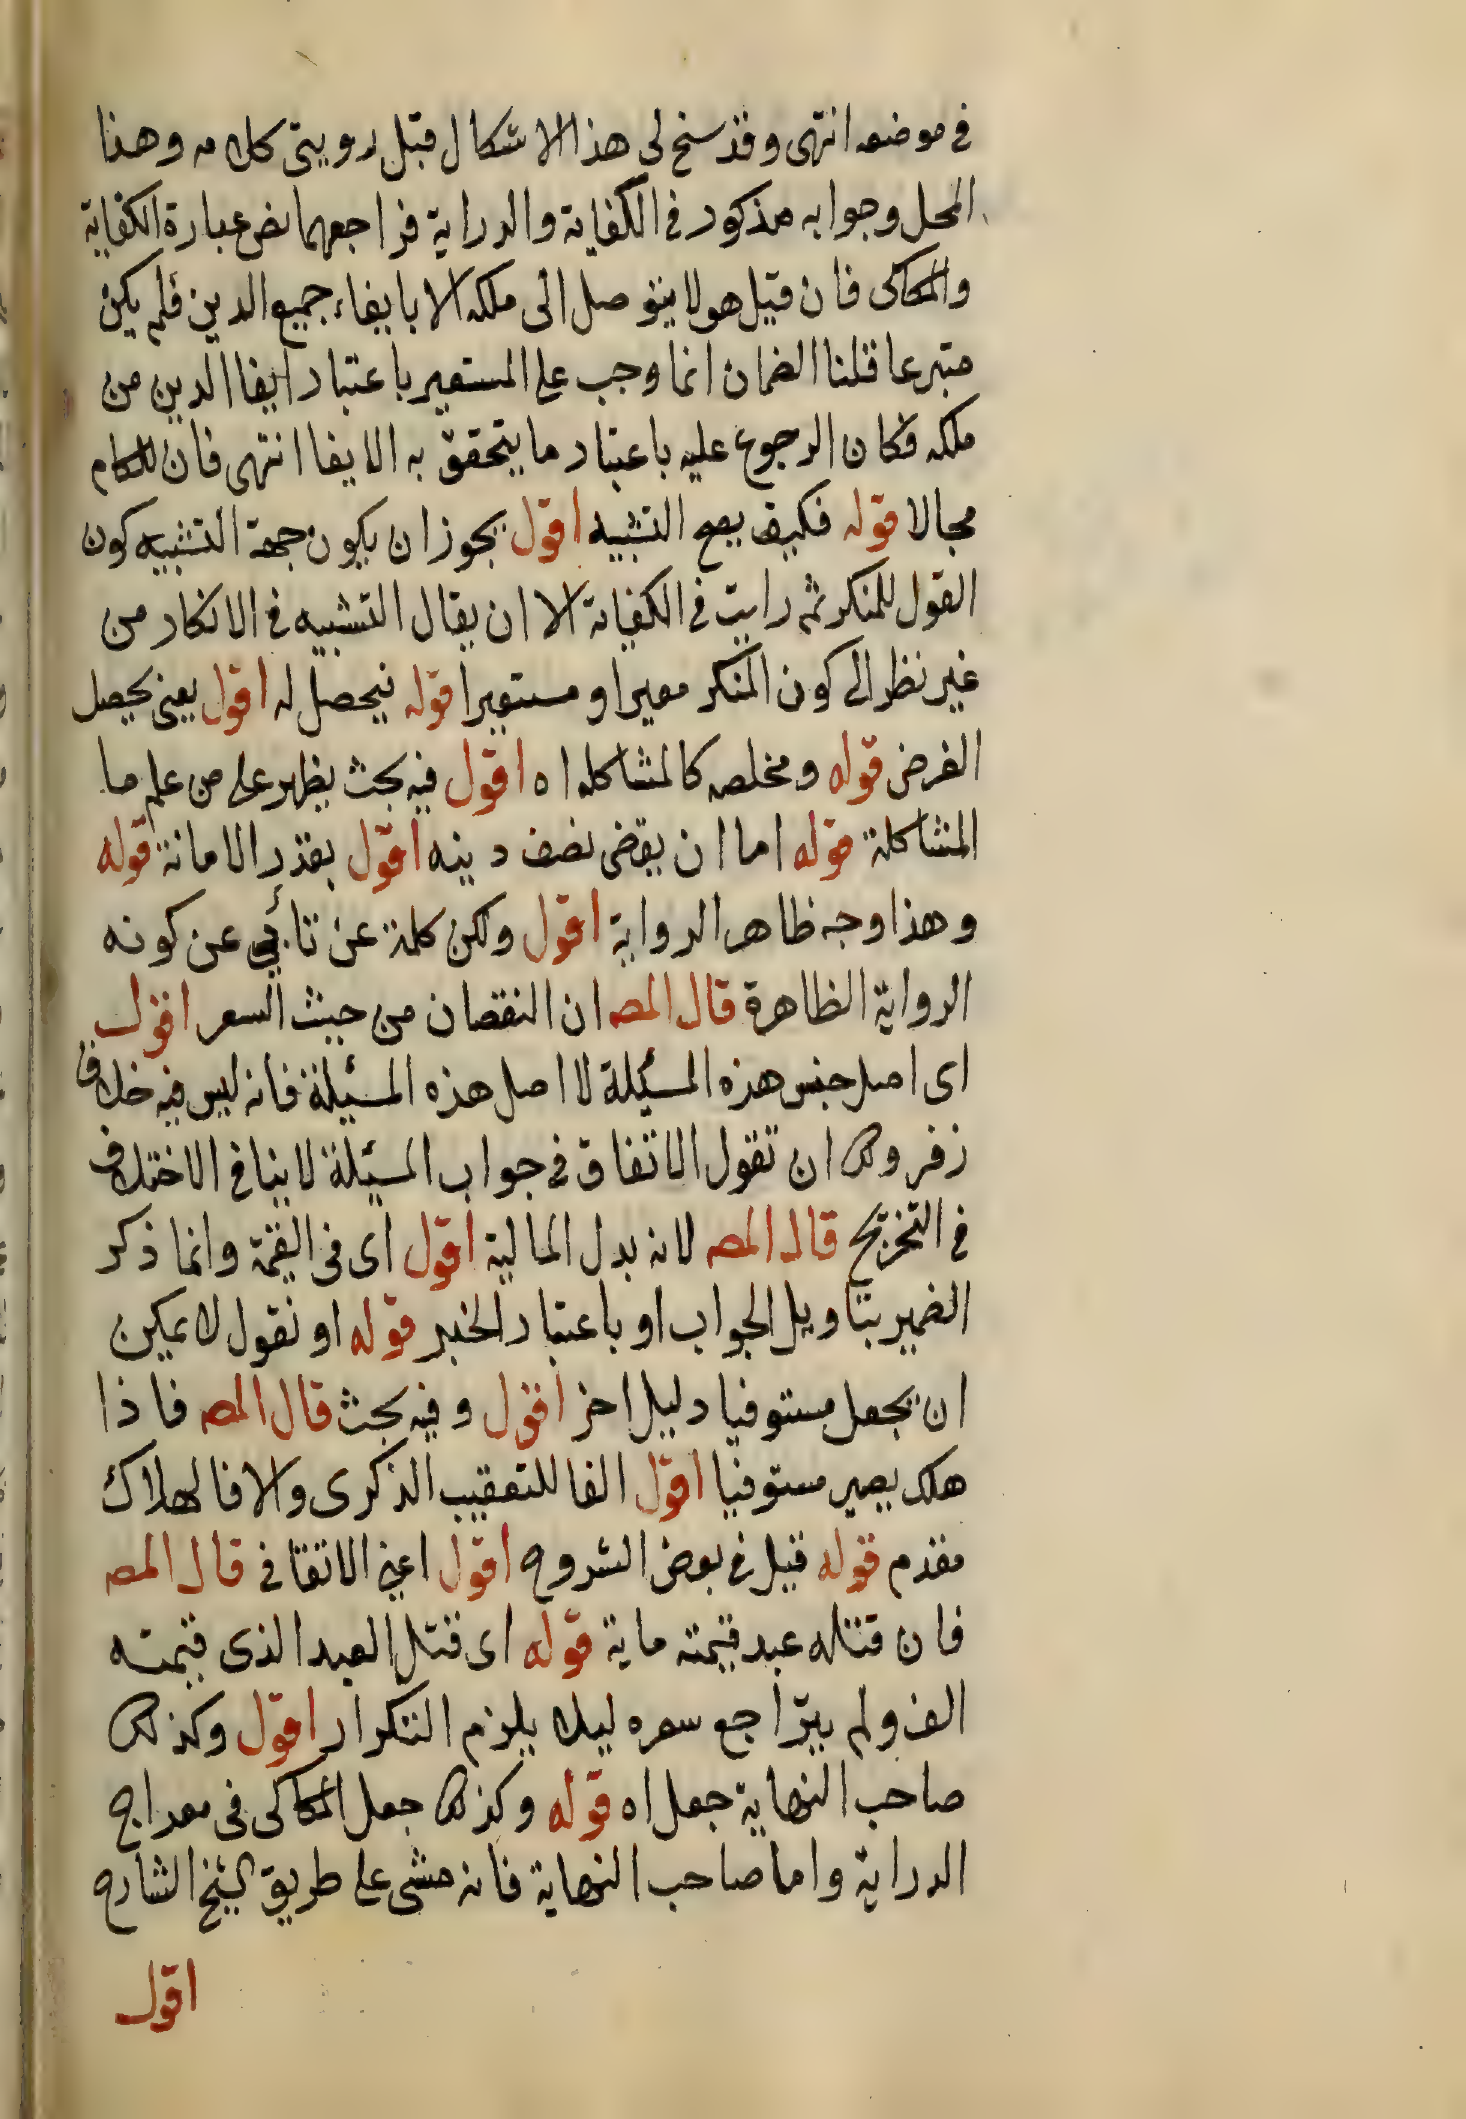 في موضعه انتهى وقد سنح لى هذا الاشكال قبل رويتى كلامه وهذا
المحل وجوابه مذكور في الكفاية والدراية فراجعهما نص عبارة الكفاية
والكاكى فان قيل هو لا يتوصل الى ملكه الا بايفاء جميع الدين فلم يكن
متبرعا قلنا الضمان انما وجب على المستعير باعتبار ايفا الدين من
ملكه فكان الرجوع عليه باعتبار ما يتحقق به الايفا انتهى فان للكلام
مجالا قوله فكيف يصح التشبيه اقول يجوز ان يكون جهة التشبيه كون
القول للمنكر ثم رايت في الكفاية الا ان يقال التشبيه في الانكار من
غير نظر الى كون المنكر معيرا او مستعيرا قوله فيحصل له اقول يعنى يحصل
الغرض قوله ومخلصه كالمشاكله اه اقول فيه بحث يظهر على من علم ما
المشاكلة قوله اما ان يقضى نصف دينه اقول بقدر الامانة قوله
وهذا وجه ظاهر الرواية اقول ولكن كلمة عن تأبى عن كونه
الرواية الظاهرة قال المصـ ان النقصان من حيث السعر اقول
اى اصل جنس هذه المسئلة لا اصل هذه المسئلة فانه ليس فيه خلاف
زفر ولك ان تقول الاتفاق في جواب المسئلة لا ينافي الاختلاف
في التخريج قال المصـ لانه بدل المالية اقول اى في القيمة وانما ذكر
الضمير بتاويل الجواب او باعتبار الخبر قوله او نقول لا يمكن
ان يجعل مستوفيا دليل اخر اقول وفيه بحث قال المصـ فاذا
هلك يصير مستوفيا اقول الفا للتعقيب الذكرى والا فالهلاك
مقدم قوله قيل في بعض الشروح اقول اعنى الاتقانى قال المصـ
فان قتله عبد قيمته ماية قوله اى قتل العبد الذى قيمته
الف ولم يتراجع سعره ليلا يلزم التكرار اقول وكذلك
صاحب النهاية جعل اه قوله وكذلك جعل الكاكى في معراج
الدراية واما صاحب النهاية فانه مشى على طريق الشيخ الشارح
اقول